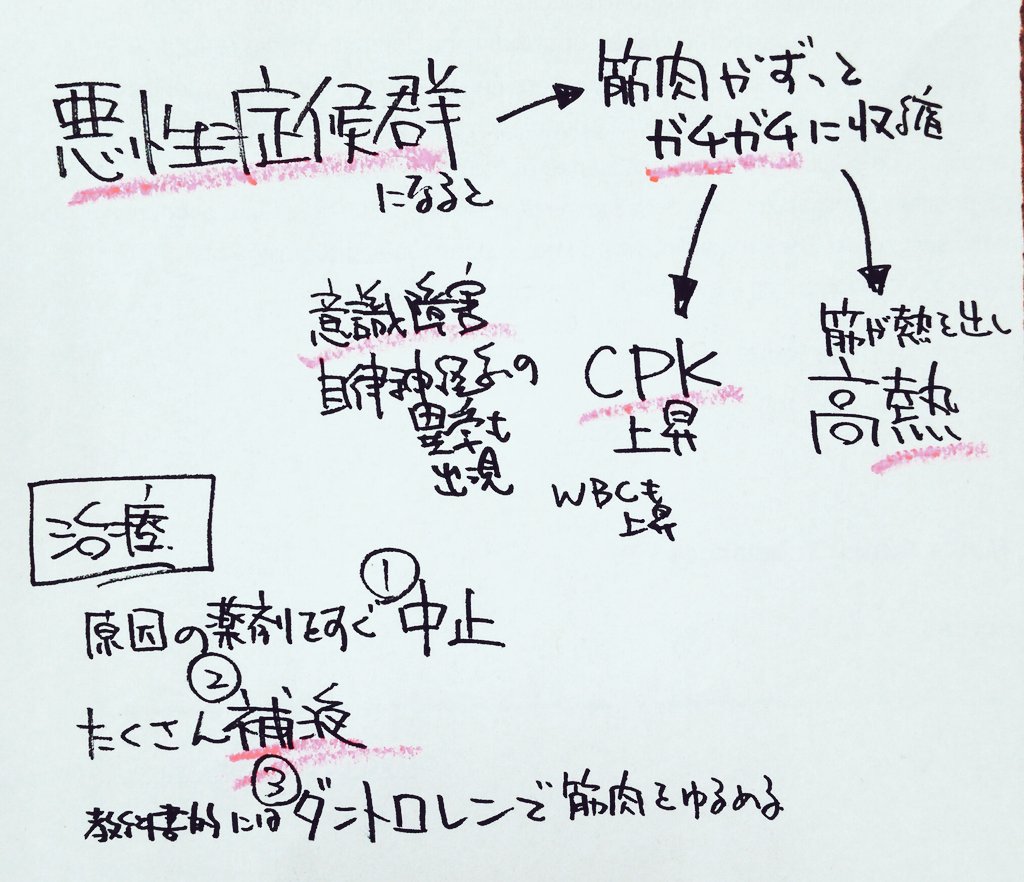 悪性症候群
になると
筋肉がずっと
ガチガチに収縮
意識障害
自律神経系の
異常も
出現
CPK
上昇
WBCも
上昇
筋が熱を出し
高熱
治療
①
原因の薬剤をすぐ中止
②
たくさん補液
③
教科書的にはダントロレンで筋肉をゆるめる